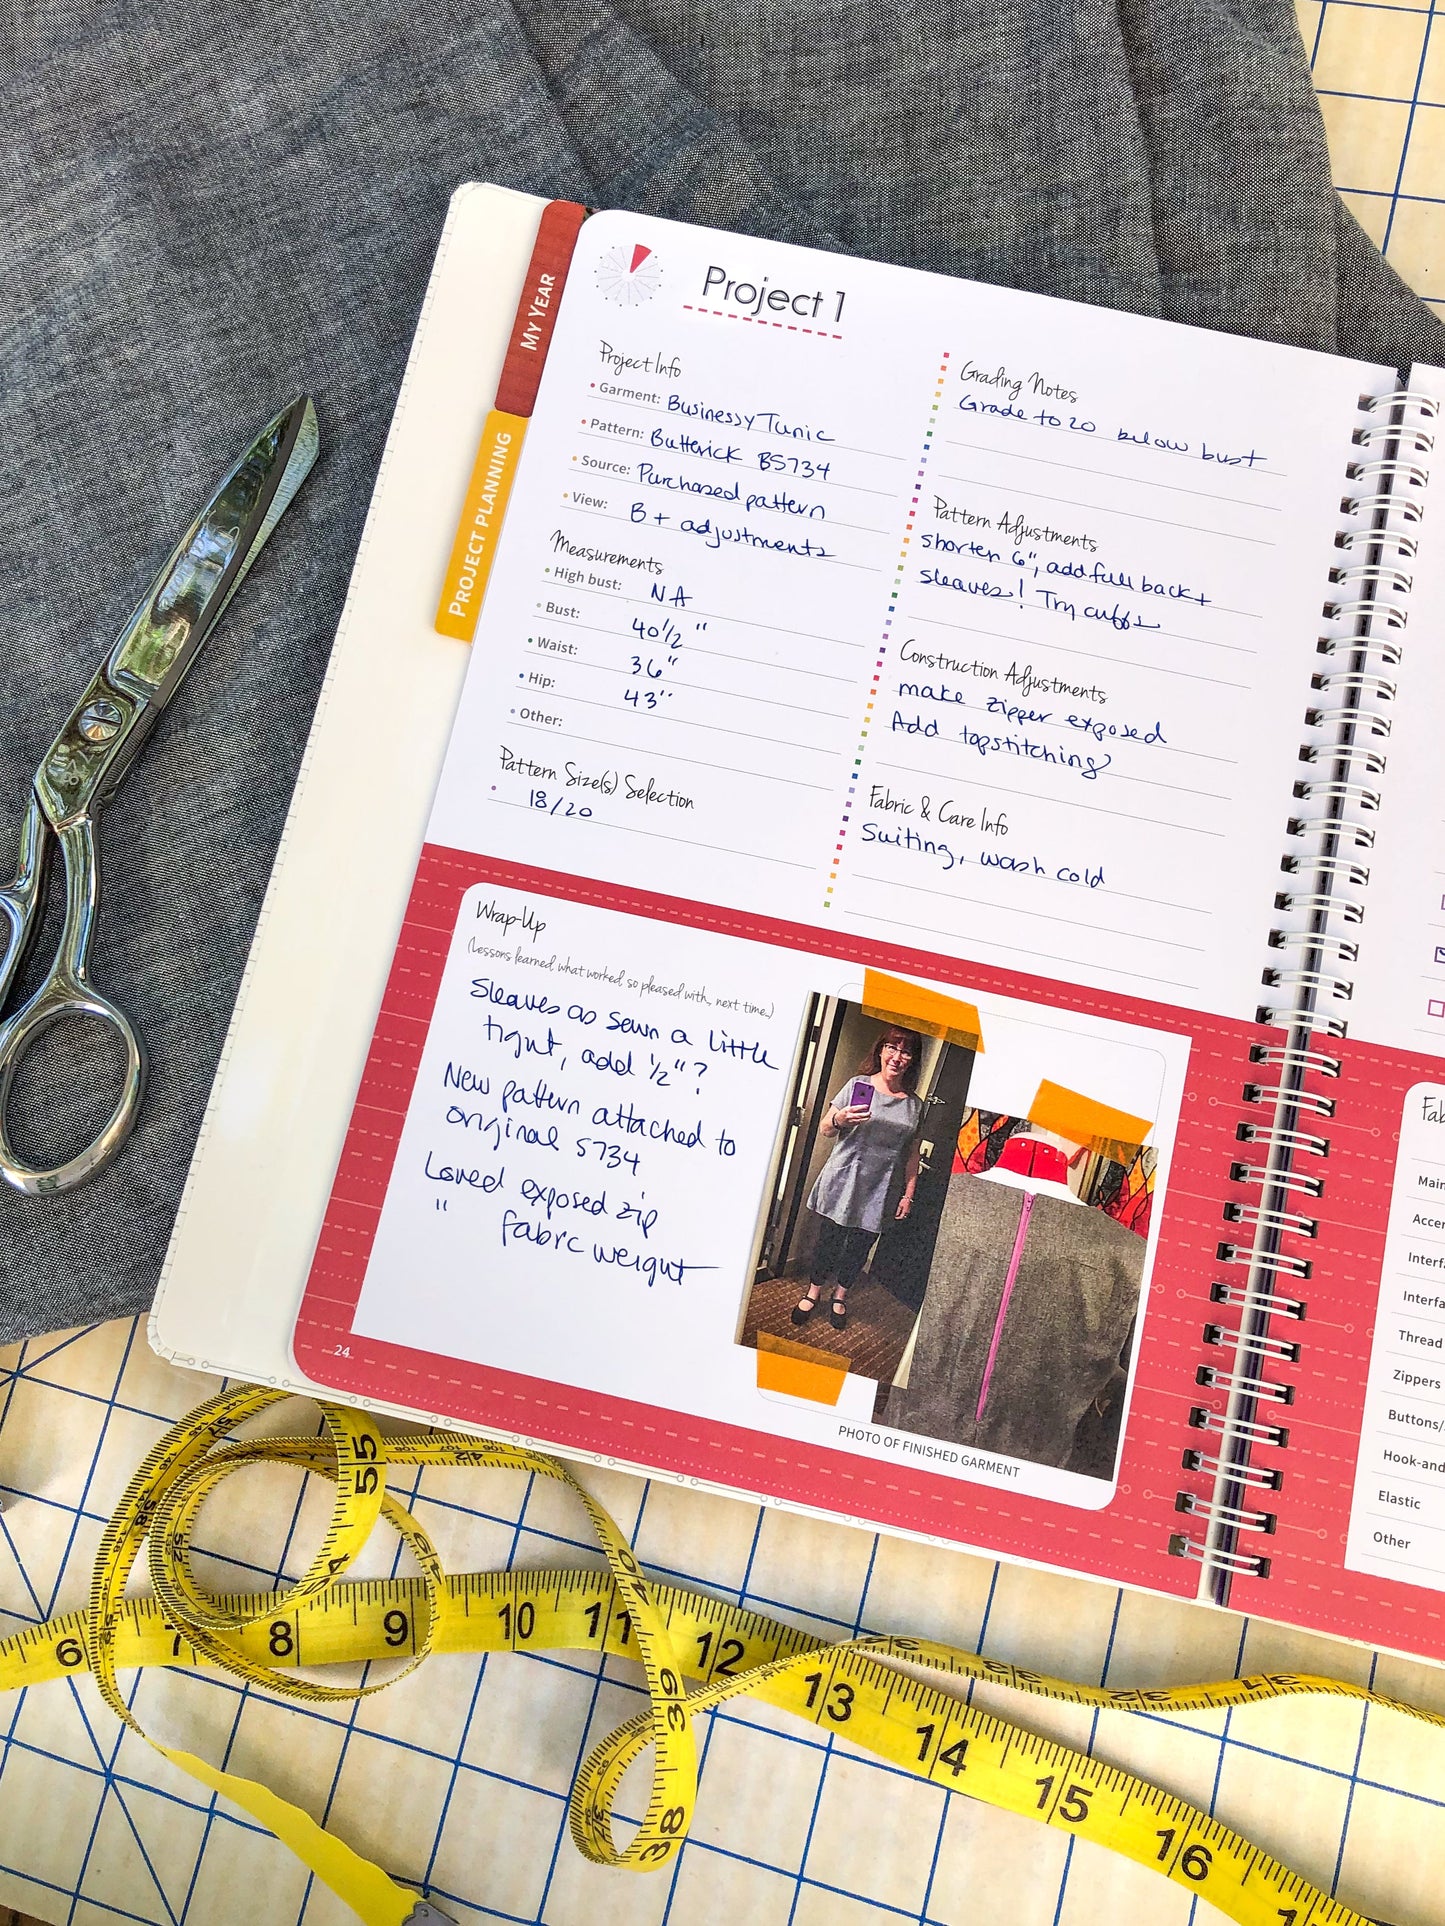 MY YEAR
PROJECT PLANNING
Project 1
Project Info
Garment: Businessy Tunic
Pattern: Butterick B5734
Source: Purchased pattern
View: B + adjustments
Measurements
High bust: NA
Bust: 40 1/2 "
Waist: 36"
Hip: 43"
Other:
Pattern Size(s) Selection
18/20
Grading Notes
Grade to 20 below bust
Pattern Adjustments
shorten 6", add full back +
sleaves! Try cuffs
Construction Adjustments
make zipper exposed
Add topstitching
Fabric & Care Info
Suiting, wash cold
Wrap-Up
(Lessons learned, what worked, so pleased with, next time...)
Sleaves as sewn a little
tight, add 1/2"?
New pattern attached to
original 5734
Loved exposed zip
" fabrc weight
PHOTO OF FINISHED GARMENT
24
Fab
Main
Accen
Interfa
Interfa
Thread
Zippers
Buttons/
Hook-and
Elastic
Other
55
54
42
40
39
38
6 7 8 9 10 11 12 13 14 15 16 17